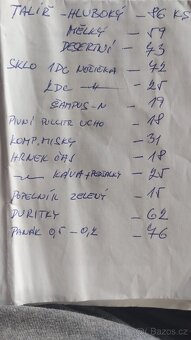 TALÍŘ - HLUBOKÝ - 86 KS
MĚLKÝ - 59
DESERTNÍ - 43
SKLO 1DC NEČIČKA - 42
2DC —"— - 25
ŠAMPUS-N - 19
PIVNÍ PULLITR UCHO - 18
KOMP. MISKY - 31
HRNEK ČAJ - 18
—"— KÁVA + PODŠÁLKY - 25
POPELNÍK ZELENÝ - 15
DURITKY - 62
PANÁK 0,5 - 0,2 - 76
Bazos.cz